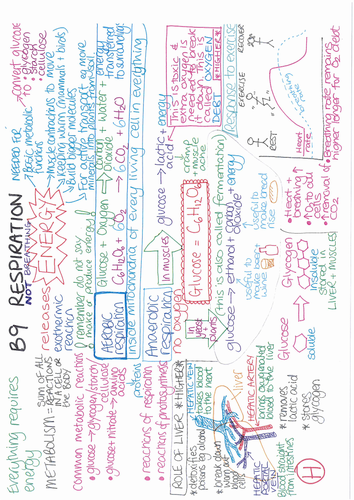 B9 RESPIRATION
NOT BREATHING
Everything requires
energy
METABOLISM = SUM OF ALL
REACTIONS
IN A CELL OR
THE BODY
Common metabolic reactions
• glucose → glycogen/starch/
cellulose
• glucose + nitrate → amino
acids
proteins
• reactions of respiration
• reactions of photosynthesis
releases ENERGY
exothermic
reaction
(! remember do not say
make or produce energy)
NEEDED FOR
• Basic metabolic
functions
• Muscle contractions to move
• Keeping warm (mammals + birds)
• Build biological molecules
• For active transport eg move
minerals into plants from soil
convert glucose
to: • glycogen
• starch
• cellulose
AEROBIC
respiration
Glucose + Oxygen → Carbon dioxide + water + energy
transferred
to surroundings
C₆H₁₂O₆ + 6O₂ → 6CO₂ + 6H₂O
inside mitochondria of every living cell in everything
Anaerobic
respiration
no oxygen
In muscles
glucose → lactic acid + energy
and muscle
ache
This is toxic &
oxygen is
needed to break
it down. This
is called OXYGEN
DEBT
*HIGHER*
Glucose = C₆H₁₂O₆
(this is also called fermentation)
glucose → ethanol + carbon dioxide + energy
useful to
make
wine
useful to
make bread
rise
Response to exercise
REST
EXERCISE
RECOVER
Heart
rate
Breathing rate remains
higher longer for O₂ debt
• Heart ↑
• breathing ↑
• O₂ to cells ↑
• removal of
CO₂
Glucose
soluble
Glycogen
insoluble
stored in
LIVER + MUSCLES
ROLE OF LIVER *HIGHER*
* detoxifies
poisons eg alcohol
* break down
worn out
blood
cells
HEPATIC VEIN
to the heart
liver
HEPATIC ARTERY
brings oxygenated
blood to the liver
HEPATIC
PORTAL
VEIN
* removes
lactic acid
* stores
glycogen
H